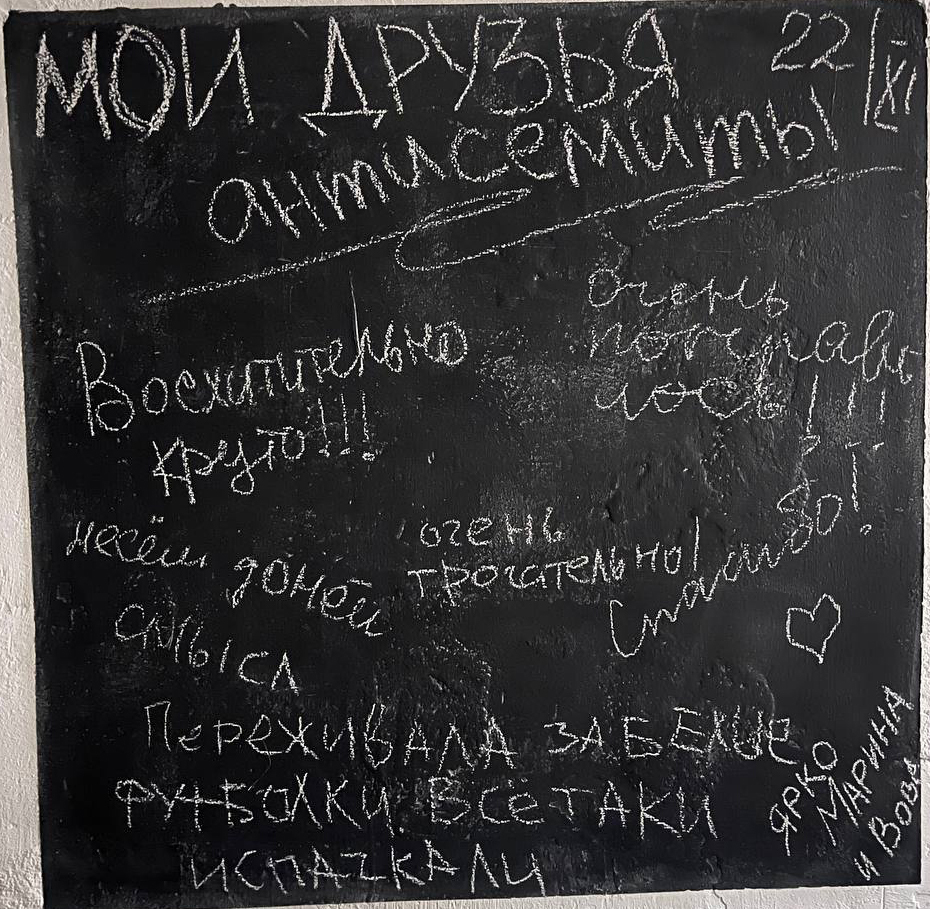 МОИ ДРУЗЬЯ
22/XI
антисемиты
Восхитительно
круто!!!
Очень
понрави
лось!!!
несём домой
смысл
очень
трогательно!
Спасибо!
Переживала за белые
футболки. Всетаки
испачкали
ЯРКО
МАРИНА
и Вова